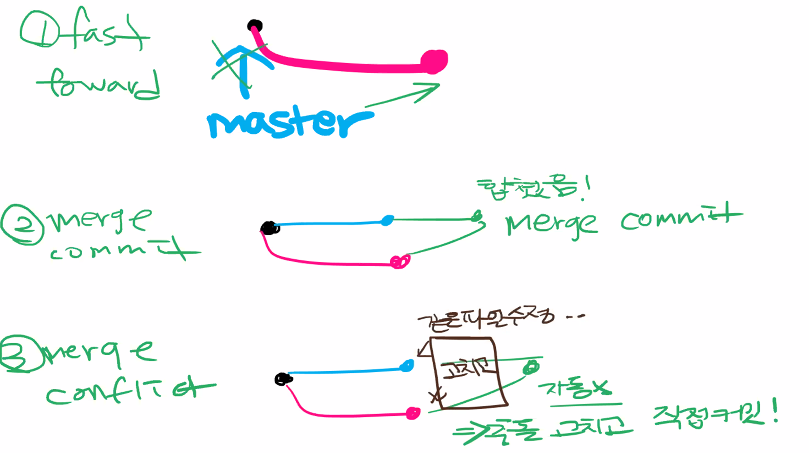 ① fast
forward
master
② merge
commit
합쳤음!
merge commit
③ merge
conflict
같은파일수정...
고치고
자동x
⇒충돌 고치고 직접커밋!